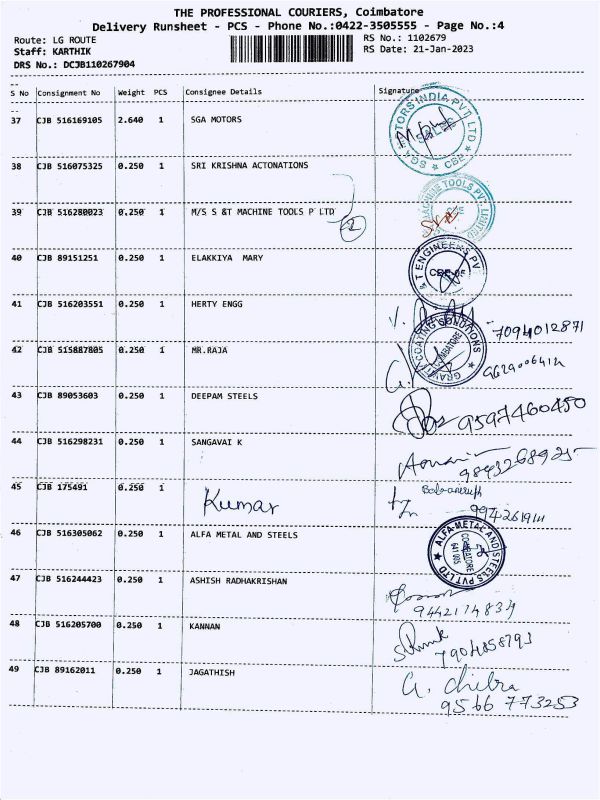 THE PROFESSIONAL COURIERS, Coimbatore
Delivery Runsheet - PCS - Phone No.:0422-3505555 - Page No.:4
Route: LG ROUTE
Staff: KARTHIK
DRS No.: DCJB110267904
RS No.: 1102679
RS Date: 21-Jan-2023
S No Consignment No Weight PCS Consignee Details Signature
37 CJB 516169105 2.640 1 SGA MOTORS
SGA MOTORS INDIA PVT. LTD ★ CBE ★
38 CJB 516075325 0.250 1 SRI KRISHNA ACTONATIONS
39 CJB 516280023 0.250 1 M/S S &T MACHINE TOOLS P LTD
2
MACHINE TOOLS PVT. LIMITED
40 CJB 89151251 0.250 1 ELAKKIYA MARY
& T ENGINEERS PV
41 CJB 516203551 0.250 1 HERTY ENGG
7094012871
42 CJB 515887805 0.250 1 MR.RAJA
COATING SOLUTIONS
COIMBATORE
43 CJB 89053603 0.250 1 DEEPAM STEELS
9597460450
44 CJB 516298231 0.250 1 SANGAVAI K
9843268925
45 CJB 175491 0.250 1
Kumar
46 CJB 516305062 0.250 1 ALFA METAL AND STEELS
ALFA METAL AND STEELS PVT LTD
COIMBATORE
641 005
47 CJB 516244423 0.250 1 ASHISH RADHAKRISHAN
9442174834
48 CJB 516205700 0.250 1 KANNAN
7904858793
49 CJB 89162011 0.250 1 JAGATHISH
G. Chitra
9566 773253